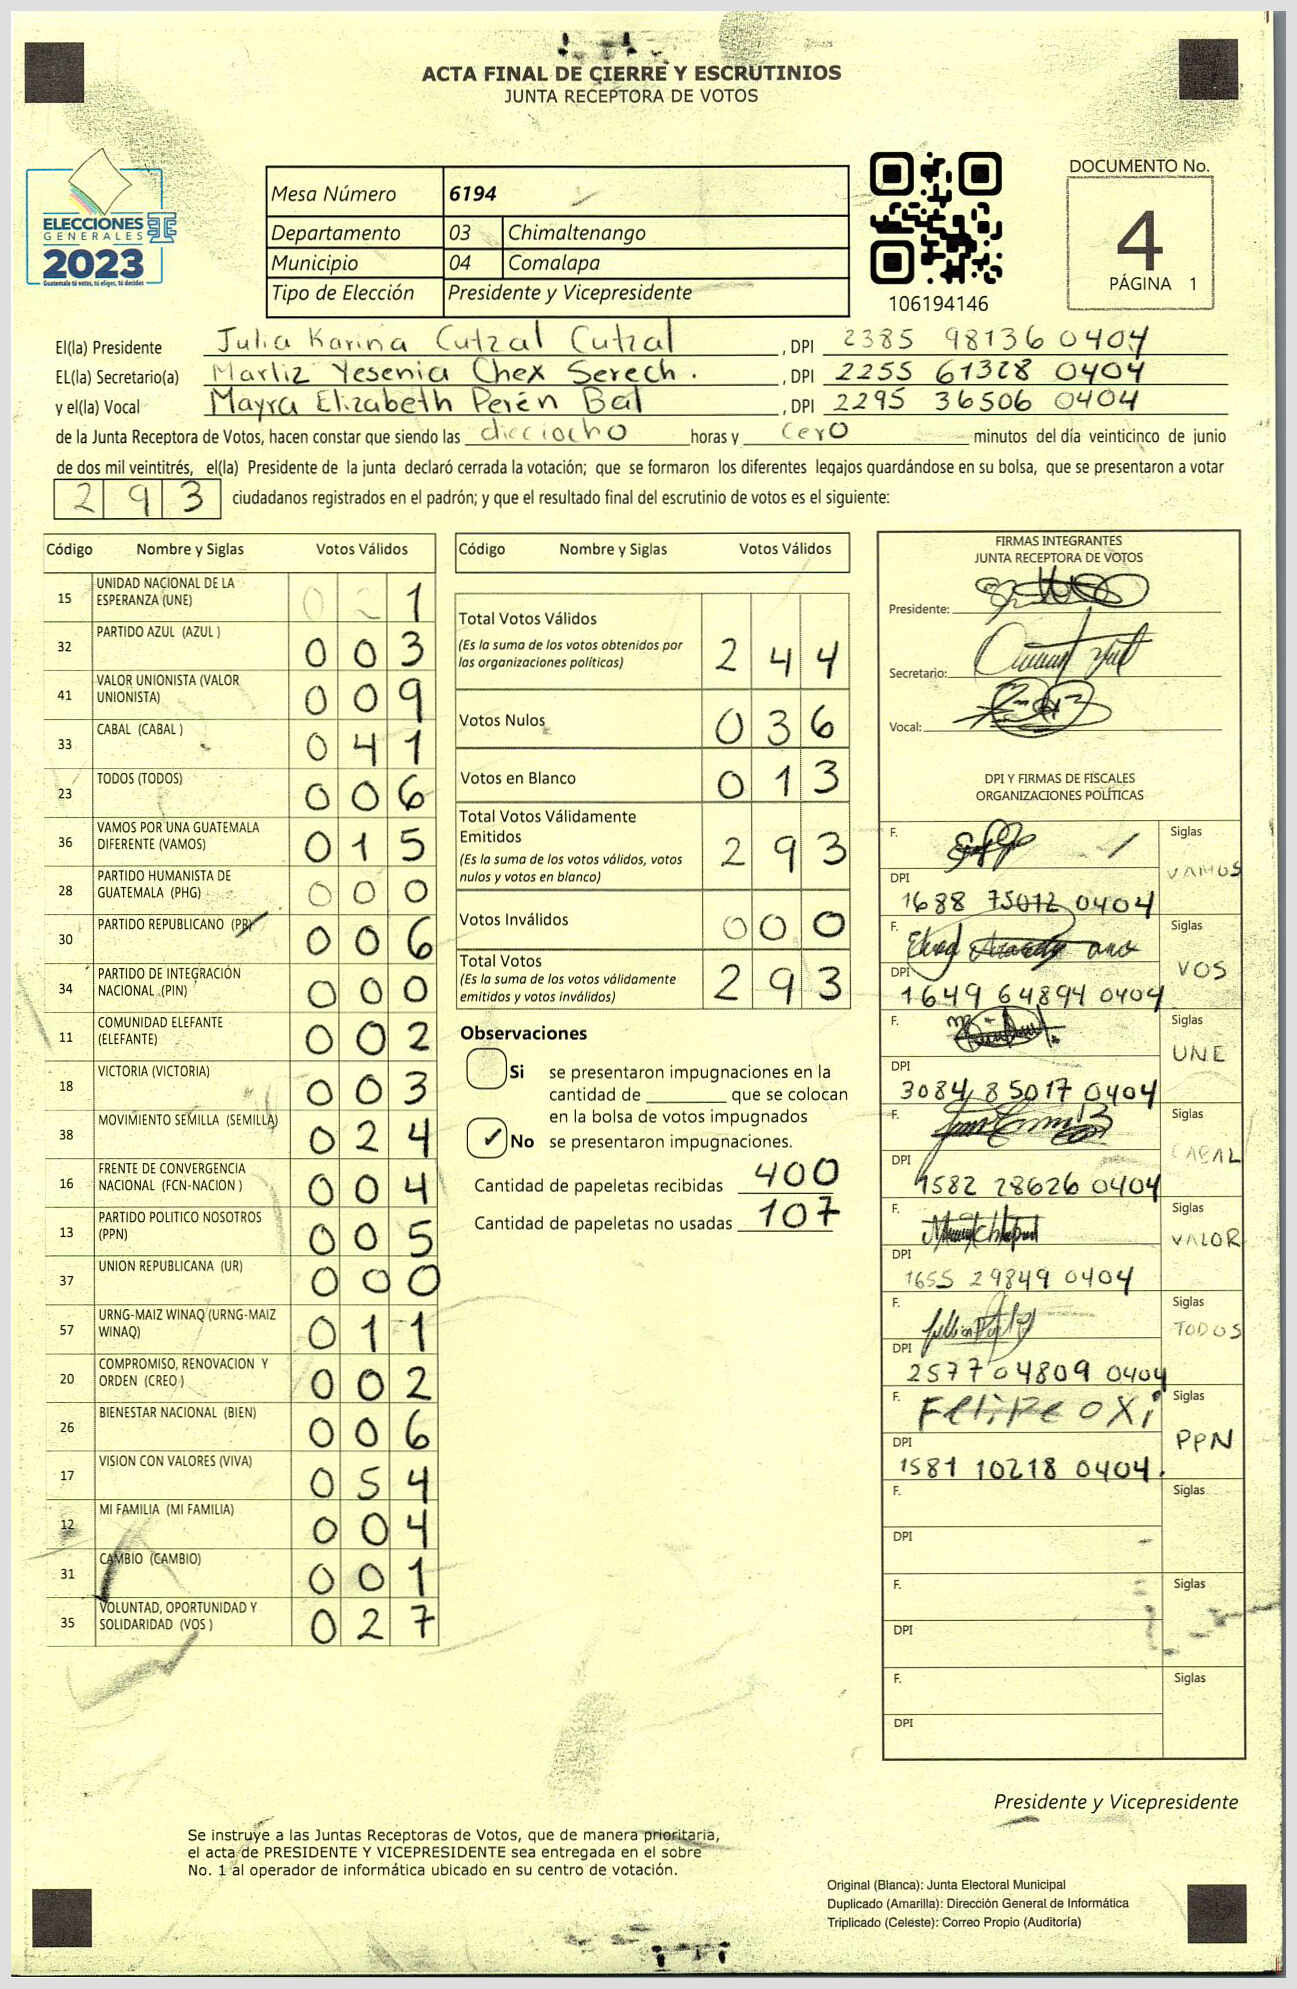 ACTA FINAL DE CIERRE Y ESCRUTINIOS
JUNTA RECEPTORA DE VOTOS
ELECCIONES
GENERALES
2023
Guatemala tú votes, tú eliges, tú decides
Mesa Número 6194
Departamento 03 Chimaltenango
Municipio 04 Comalapa
Tipo de Elección Presidente y Vicepresidente
106194146
DOCUMENTO No.
4
PÁGINA 1
El(la) Presidente Julia Karina Cutzal Cutzal , DPI 2385 98136 0404
EL(la) Secretario(a) Marliz Yesenia Chex Serech. , DPI 2255 61328 0404
y el(la) Vocal Mayra Elizabeth Perén Bal , DPI 2295 36506 0404
de la Junta Receptora de Votos, hacen constar que siendo las dieciocho horas y cero minutos del día veinticinco de junio
de dos mil veintitrés, el(la) Presidente de la junta declaró cerrada la votación; que se formaron los diferentes legajos guardándose en su bolsa, que se presentaron a votar
293 ciudadanos registrados en el padrón; y que el resultado final del escrutinio de votos es el siguiente:
Código Nombre y Siglas Votos Válidos
15 UNIDAD NACIONAL DE LA
ESPERANZA (UNE) 0 2 1
32 PARTIDO AZUL (AZUL ) 0 0 3
41 VALOR UNIONISTA (VALOR
UNIONISTA) 0 0 9
33 CABAL (CABAL ) 0 4 1
23 TODOS (TODOS) 0 0 6
36 VAMOS POR UNA GUATEMALA
DIFERENTE (VAMOS) 0 1 5
28 PARTIDO HUMANISTA DE
GUATEMALA (PHG) 0 0 0
30 PARTIDO REPUBLICANO (PR) 0 0 6
34 PARTIDO DE INTEGRACIÓN
NACIONAL (PIN) 0 0 0
11 COMUNIDAD ELEFANTE
(ELEFANTE) 0 0 2
18 VICTORIA (VICTORIA) 0 0 3
38 MOVIMIENTO SEMILLA (SEMILLA) 0 2 4
16 FRENTE DE CONVERGENCIA
NACIONAL (FCN-NACION ) 0 0 4
13 PARTIDO POLITICO NOSOTROS
(PPN) 0 0 5
37 UNION REPUBLICANA (UR) 0 0 0
57 URNG-MAIZ WINAQ (URNG-MAIZ
WINAQ) 0 1 1
20 COMPROMISO, RENOVACION Y
ORDEN (CREO ) 0 0 2
26 BIENESTAR NACIONAL (BIEN) 0 0 6
17 VISION CON VALORES (VIVA) 0 5 4
12 MI FAMILIA (MI FAMILIA) 0 0 4
31 CAMBIO (CAMBIO) 0 0 1
35 VOLUNTAD, OPORTUNIDAD Y
SOLIDARIDAD (VOS ) 0 2 7
Código Nombre y Siglas Votos Válidos
Total Votos Válidos
(Es la suma de los votos obtenidos por
las organizaciones políticas) 2 4 4
Votos Nulos 0 3 6
Votos en Blanco 0 1 3
Total Votos Válidamente
Emitidos
(Es la suma de los votos válidos, votos
nulos y votos en blanco) 2 9 3
Votos Inválidos 0 0 0
Total Votos
(Es la suma de los votos válidamente
emitidos y votos inválidos) 2 9 3
Observaciones
Si se presentaron impugnaciones en la
cantidad de ________ que se colocan
en la bolsa de votos impugnados
✓ No se presentaron impugnaciones.
Cantidad de papeletas recibidas 400
Cantidad de papeletas no usadas 107
FIRMAS INTEGRANTES
JUNTA RECEPTORA DE VOTOS
Presidente:
Secretario:
Vocal:
DPI Y FIRMAS DE FISCALES
ORGANIZACIONES POLÍTICAS
F. Siglas
VAMOS
DPI
1688 75072 0404
F. Siglas
VOS
DPI
1649 64894 0404
F. Siglas
UNE
DPI
3084 85017 0404
F. Siglas
CABAL
DPI
1582 28626 0404
F. Siglas
VALOR
DPI
1655 29849 0404
F. Siglas
TODOS
DPI
2577 04809 0404
F. Felipe Oxi Siglas
PPN
DPI
1581 10218 0404.
F. Siglas
DPI
F. Siglas
DPI
F. Siglas
DPI
Presidente y Vicepresidente
Se instruye a las Juntas Receptoras de Votos, que de manera prioritaria,
el acta de PRESIDENTE Y VICEPRESIDENTE sea entregada en el sobre
No. 1 al operador de informática ubicado en su centro de votación.
Original (Blanca): Junta Electoral Municipal
Duplicado (Amarilla): Dirección General de Informática
Triplicado (Celeste): Correo Propio (Auditoría)